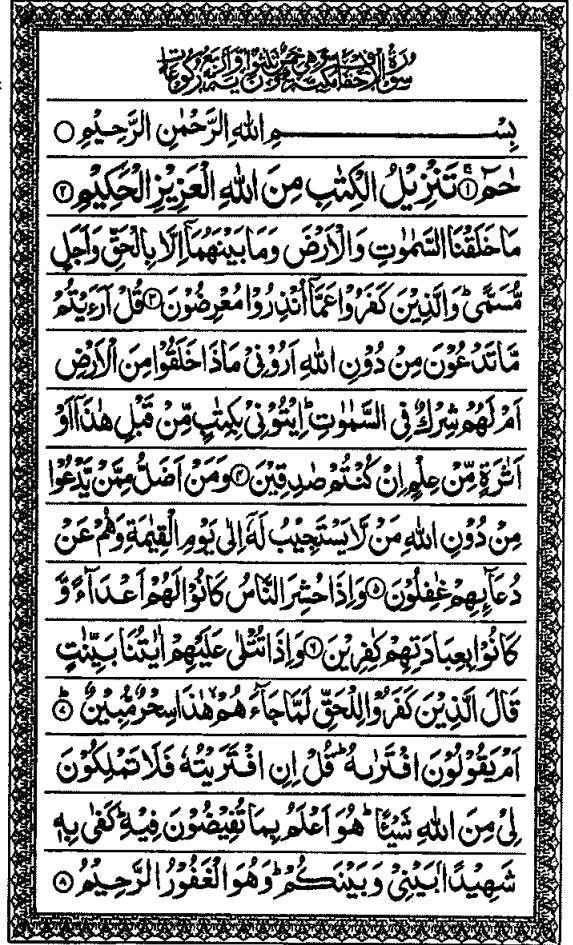 سورة الاحقاف مكية وهى خمس وثلثون اية واربع ركوعات
بِسْمِ اللهِ الرَّحْمٰنِ الرَّحِيْمِ ○
حٰمٓ ۚ﴿۱﴾ تَنْزِيْلُ الْكِتٰبِ مِنَ اللهِ الْعَزِيْزِ الْحَكِيْمِ ﴿۲﴾
مَا خَلَقْنَا السَّمٰوٰتِ وَالْاَرْضَ وَمَا بَيْنَهُمَآ اِلَّا بِالْحَقِّ وَاَجَلٍ
مُّسَمًّى ؕ وَالَّذِيْنَ كَفَرُوْا عَمَّآ اُنْذِرُوْا مُعْرِضُوْنَ ﴿۳﴾ قُلْ اَرَءَيْتُمْ
مَّا تَدْعُوْنَ مِنْ دُوْنِ اللهِ اَرُوْنِيْ مَاذَا خَلَقُوْا مِنَ الْاَرْضِ
اَمْ لَهُمْ شِرْكٌ فِي السَّمٰوٰتِ ؕ اِيْتُوْنِيْ بِكِتٰبٍ مِّنْ قَبْلِ هٰذَآ اَوْ
اَثٰرَةٍ مِّنْ عِلْمٍ اِنْ كُنْتُمْ صٰدِقِيْنَ ﴿۴﴾ وَمَنْ اَضَلُّ مِمَّنْ يَّدْعُوْا
مِنْ دُوْنِ اللهِ مَنْ لَّا يَسْتَجِيْبُ لَهٗٓ اِلٰى يَوْمِ الْقِيٰمَةِ وَهُمْ عَنْ
دُعَآئِهِمْ غٰفِلُوْنَ ﴿۵﴾ وَاِذَا حُشِرَ النَّاسُ كَانُوْا لَهُمْ اَعْدَآءً وَّ
كَانُوْا بِعِبَادَتِهِمْ كٰفِرِيْنَ ﴿۶﴾ وَاِذَا تُتْلٰى عَلَيْهِمْ اٰيٰتُنَا بَيِّنٰتٍ
قَالَ الَّذِيْنَ كَفَرُوْا لِلْحَقِّ لَمَّا جَآءَهُمْ ۙ هٰذَا سِحْرٌ مُّبِيْنٌ ؕ﴿۷﴾
اَمْ يَقُوْلُوْنَ افْتَرٰىهُ ؕ قُلْ اِنِ افْتَرَيْتُهٗ فَلَا تَمْلِكُوْنَ
لِيْ مِنَ اللهِ شَيْئًا ؕ هُوَ اَعْلَمُ بِمَا تُفِيْضُوْنَ فِيْهِ ؕ كَفٰى بِهٖ
شَهِيْدًاۢ بَيْنِيْ وَبَيْنَكُمْ ؕ وَهُوَ الْغَفُوْرُ الرَّحِيْمُ ﴿۸﴾